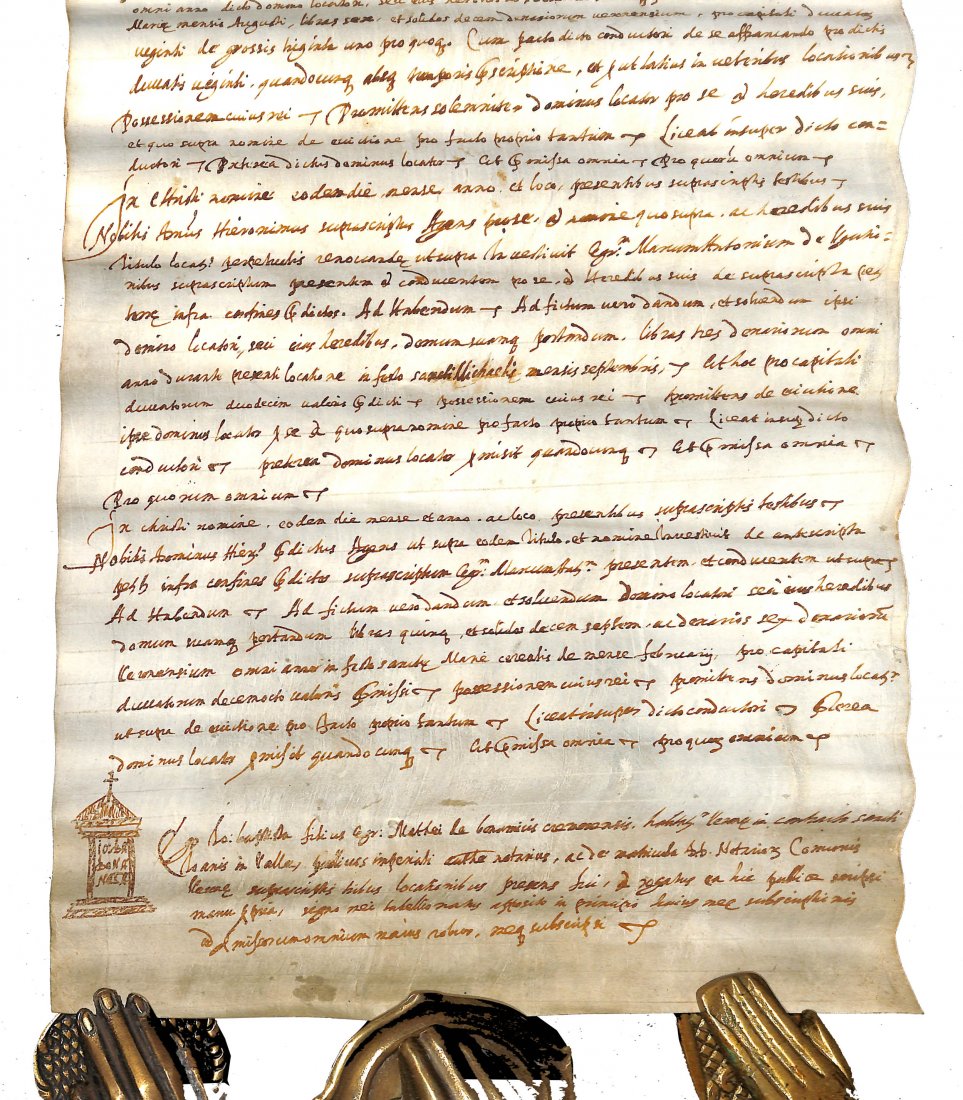 omni anno dicto domino locatori, seu eius
Mariæ mensis Augusti, libras sex, et solidos decem denariorum veronensium, pro capitali ducatorum
veginti de grossis triginta uno pro quoq. Cum pacto dicto conductori de se affrancando pro dictis
ducatis veginti, quandocunq absq temporis pscriptione, et put latius in veteribus locationibus
Possessionem cuius rei Promittens solemniter dominus locator pro se et heredibus suis,
et quo supra nomine de evictione pro facto proprio tantum Liceat insuper dicto con-
ductori Preterea dictus dominus locator Et pmissa omnia Pro quorum omnium
In Christi nomine eodem die, mense, anno, et loco, presentibus suprascriptis testibus
Nobilis Hieronimus suprascriptus Agens pro se, et nomine quo supra, ac heredibus suis
titulo locat. perpetualis renovandæ, ut supra Investivit Egr. Marcum Antonium de
nibus suprascriptum presentem et conducentem pro se, et Heredibus suis de suprascripta
infra confines pdictos. Ad Habendum Ad fictum vero dandum, et solvendum ipsi
domino locatori, seu eius heredibus, domum suamq portandum, libras tres denariorum omni
anno durante presenti locatione in festo sancti Michaelis mensis septembris, Et hoc pro capitali
ducatorum duodecim valoris pdicti Possessionem cuius rei promittens de evictione
ipse dominus locator p se et quo supra nomine pro facto proprio tantum Liceat insup dicto
conductori preterea dominus locator pmisit quandocunq Et pmissa omnia
Pro quorum omnium
In christi nomine, eodem die mense et anno, ac loco, presentibus suprascriptis testibus
Nobilis Dominus Hier. pdictus Agens ut supra eodem titulo, et nomine Investivit de antescripta
infra confines pdictos suprascriptum Egr. Marcum Ant. presentem, et conducentem ut supra
Ad Habendum Ad fictum vero dandum, et solvendum Domino locatori seu eius heredibus
domum suamq portandum libras quinq, et solidos decem septem, ac denarios sex denariorum
Veronensium omni anno in festo sanctæ Mariæ cerealis de mense februarij, pro capitali
ducatorum decemocto valoris pmissi possessionem cuius rei promittens dominus locat.
ut supra de evictione pro facto proprio tantum Liceat insuper dicto conductori pterea
dominus locator pmisit quandocunq Et pmissa omnia pro quor omnium
IO: BA
BONA
Ego Io: baptista filius Egr: Mathei de bonomicis habit. Veronæ in contracta sancti
Ioanis in Valle, publicus imperiali auth notarius, ac de matricula Notarior Comunis
Veronæ suprascriptis tribus locationibus presens fui, et rogatus ea hic publice scripsi
manu ppria, signo mei tabellionatus apposito in principio huius meæ subscriptionis
ad pmissorum omnium maius robur, meq subscripsi